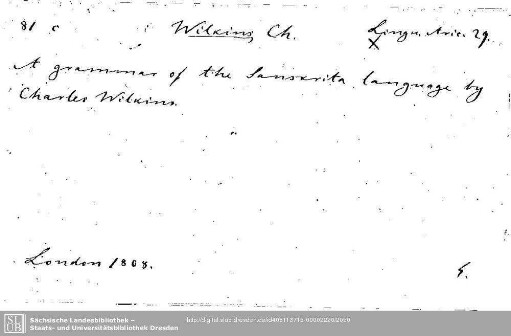 81 c Wilkins Ch. Lingu. Aric. 29.
A grammar of the Sanskrita language by
Charles Wilkins.
London 1808.
Sächsische Landesbibliothek –
Staats- und Universitätsbibliothek Dresden